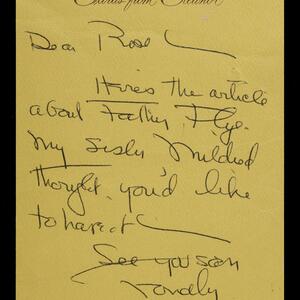 Dear Rose
Here's the article
about Father Flye.
My Sister Mildred
thought you'd like
to have it
See you soon
Fondly